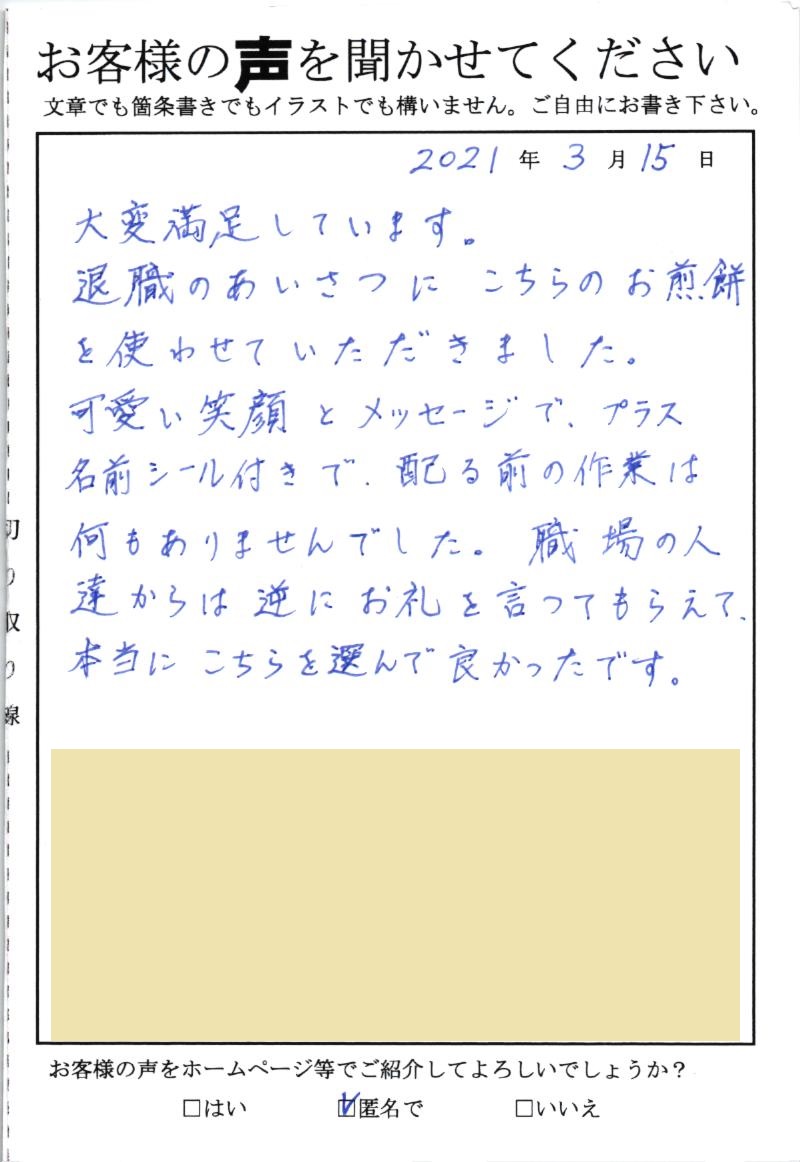 お客様の声を聞かせてください
文章でも箇条書きでもイラストでも構いません。ご自由にお書き下さい。
2021年3月15日
大変満足しています。
退職のあいさつに こちらのお煎餅
を使わせていただきました。
可愛い笑顔とメッセージで、プラス
名前シール付きで、配る前の作業は
何もありませんでした。職場の人
達からは逆にお礼を言ってもらえて、
本当にこちらを選んで良かったです。
切り取り線
お客様の声をホームページ等でご紹介してよろしいでしょうか？
□はい ☑匿名で □いいえ